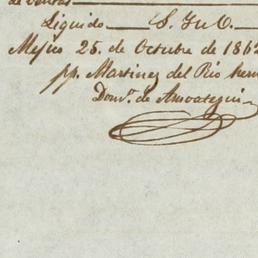 de Ventas
Liquido S. Y. u O.
Mejico 25. de Octubre de 186
pp. Martinez del Rio herm
Domo. de Ansoategui